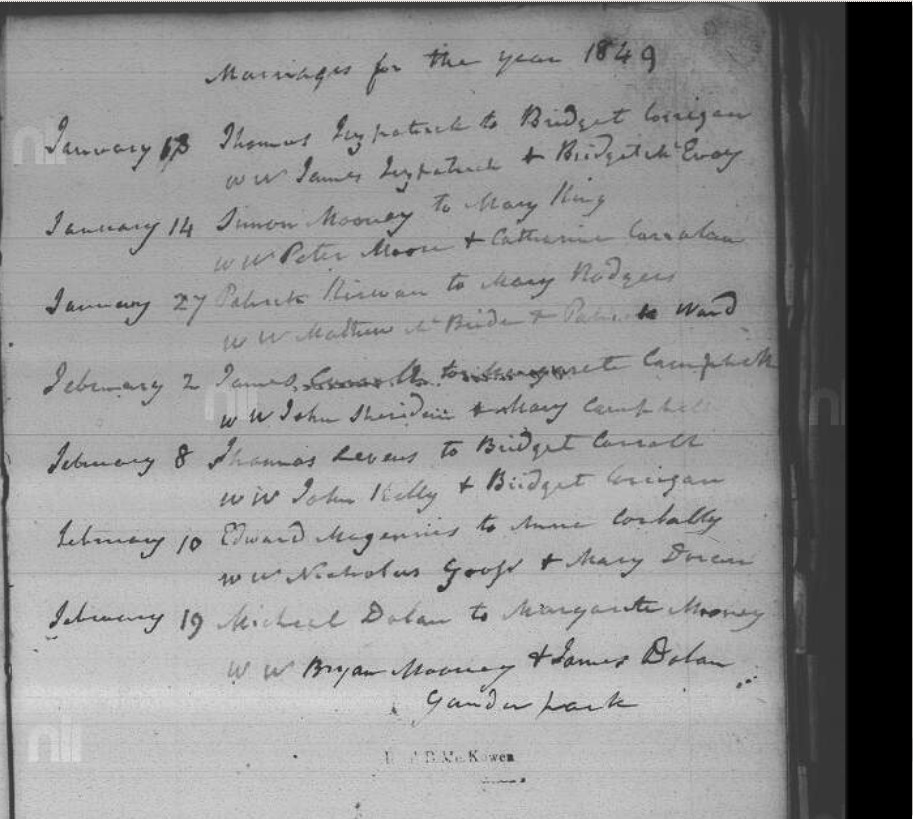 Marriages for the year 1849
January 13 Thomas Fitzpatrick to Bridget Corrigan
W W James Fitzpatrick & Bridget McEvoy
January 14 Simon Mooney to Mary King
W W Peter Moore & Catharine Carralan
January 27 Patrick Kirwan to Mary Rodgers
W W Mathew McBride & Patrick Ward
February 2 James to Margarete Campbell
W W John Sheridan & Mary Campbell
February 8 Thomas Levens to Bridget Carroll
W W John Kelly & Bridget Corrigan
February 10 Edward Magennis to Anne Corbally
W W Nicholas & Mary Doran
February 19 Micheal Dolan to Margarete Mooney
W W Bryan Mooney & James Dolan
Gander park
McKowen
nli
nli
nli